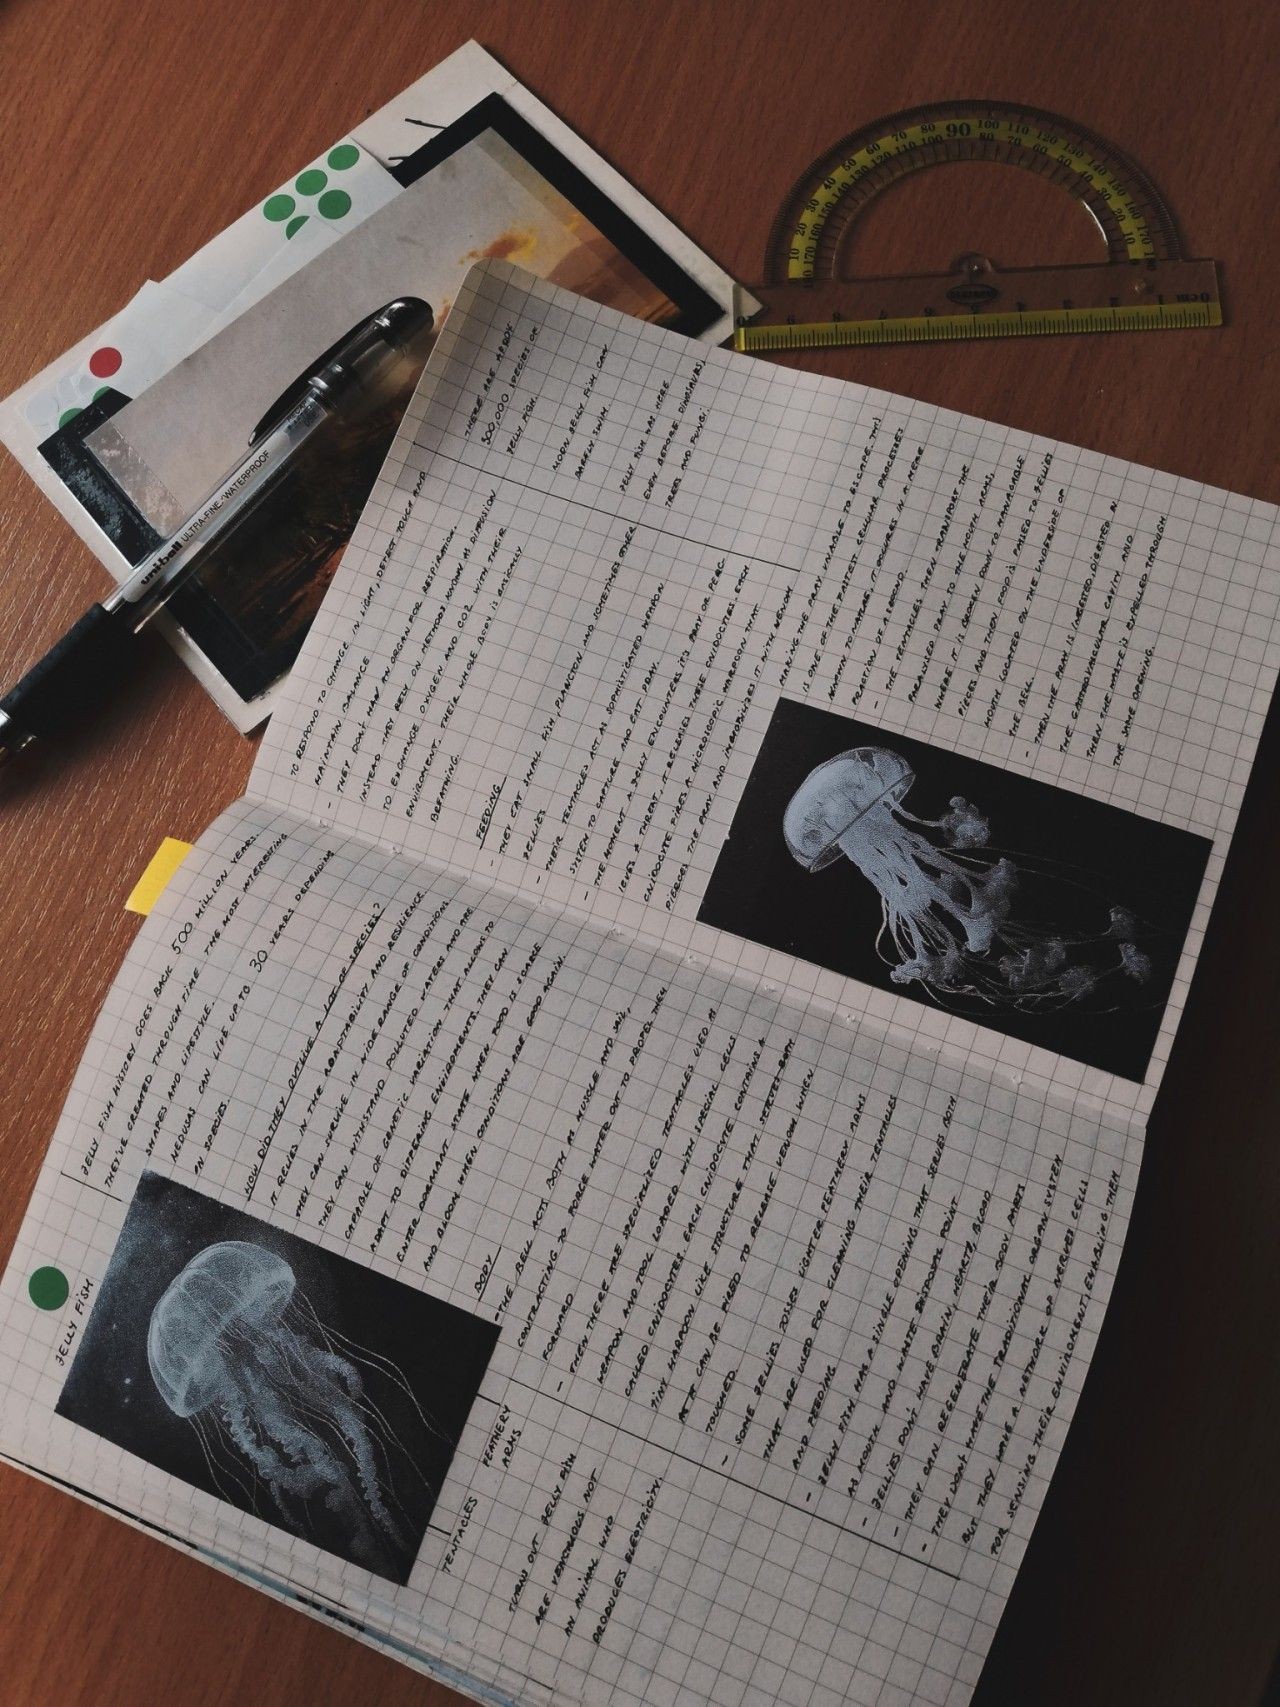 JELLY FISH
JELLY FISH HISTORY GOES BACK 500 MILLION YEARS.
THEY'VE CREATED THROUGH TIME THE MOST INTERESTING
SHAPES AND LIFESTYLE.
MEDUSA CAN LIVE UP TO 30 YEARS DEPENDING
ON SPECIES.
HOW DID THEY OUTLIVE A LOT OF SPECIES?
IT RELIES IN THE ADAPTABILITY AND RESILIENCE
THEY CAN SURVIVE IN WIDE RANGE OF CONDITIONS
THEY CAN WITHSTAND POLLUTED WATERS AND ARE
CAPABLE OF GENETIC VARIATION THAT ALLOWS TO
ADAPT TO DIFFERING ENVIROMENTS. THEY CAN
ENTER DORMANT STATE WHEN FOOD IS SCARCE
AND BLOOM WHEN CONDITIONS ARE GOOD AGAIN.
BODY
- THE BELL ACTS BOTH AS MUSCLE AND SAIL,
CONTRACTING TO FORCE WATER OUT TO PROPEL THEM
FORWARD
- THEN THERE ARE SPECIALIZED TENTACLES USED AS
WEAPON AND TOOL LOADED WITH SPECIAL CELLS
CALLED CNIDOCYTES. EACH CNIDOCYTE CONTAINS A
TINY HARPOON LIKE STRUCTURE THAT
AS IT CAN BE FIRED TO RELEASE VENOM WHEN
TOUCHED
- SOME JELLIES POSSES LIGHTER FEATHERY ARMS
THAT ARE USED FOR CLEANING THEIR TENTACLES
AND FEEDING
- JELLY FISH HAS A SINGLE OPENING THAT SERVES BOTH
AS MOUTH AND WASTE DISPOSAL POINT
- JELLIES DON'T HAVE BRAIN, HEART, BLOOD
- THEY CAN REGENERATE THEIR BODY PARTS
- THEY WON'T HAVE THE TRADITIONAL ORGAN SYSTEM
BUT THEY HAVE A NETWORK OF NERVES CELLS
FOR SENSING THEIR ENVIROMENT, ENABLING THEM
TENTACLES
FEATHERY
ARMS
TURNS OUT JELLY FISH
ARE VENOMOUS NOT
AN ANIMAL WHO
PRODUCES ELECTRICITY.
TO RESPOND TO CHANGE IN LIGHT, DETECT TOUCH AND
MAINTAIN BALANCE
- THEY DON'T HAVE AN ORGAN FOR RESPIRATION.
INSTEAD THEY RELY ON METHODS KNOWN AS DIFFUSION
TO EXCHANGE OXYGEN AND CO2 WITH THEIR
ENVIROMENT. THEIR WHOLE BODY IS BASICALLY
BREATHING.
FEEDING
- THEY EAT SMALL FISH, PLANKTON AND SOMETIMES OTHER
JELLIES
- THEIR TENTACLES ACT AS SOPHISTICATED WEAPON
SYSTEM TO CAPTURE AND EAT PRAY.
- THE MOMENT A JELLY ENCOUNTERS ITS PRAY OR PERC
IEVES A THREAT, IT RELEASES THESE CNIDOCYTES. EACH
CNIDOCYTE FIRES A MICROSCOPIC HARPOON THAT
PIERCES THE PRAY AND INTRODUCES IT WITH VENOM
MAKING THE PRAY UNABLE TO ESCAPE. THIS
IS ONE OF THE FASTEST CELLULAR PROCESSES
KNOWN TO NATURE, IT OCCURRES IN A MERE
FRACTION OF A SECOND.
- THE TENTACLES THEN TRANSPORT THE
PARALYSED PRAY TO THE MOUTH ARMS,
WHERE IT IS BROKEN DOWN TO MANAGABLE
PIECES AND THEN FOOD IS PASSED TO JELLIES
MOUTH LOCATED ON THE UNDERSIDE OF
THE BELL.
- THEN THE PRAY IS INGESTED, DIGESTED IN
THE GASTROVASCULAR CAVITY AND
THEN THE WASTE IS EXPELLED THROUGH
THE SAME OPENING.
THERE ARE ABOUT
300,000 SPECIES OF
JELLY FISH.
MOON JELLY FISH CAN
BARELY SWIM.
JELLY FISH WAS HERE
EVEN BEFORE DINOSAURS,
TREES AND FUNGI.
uni-ball ULTRA-FINE·WATERPROOF
10 20 30 40 50 60 70 80 90 100 110 120 130 140 150 160 170
0cm 1 2 3 4 5 6 7 8 9